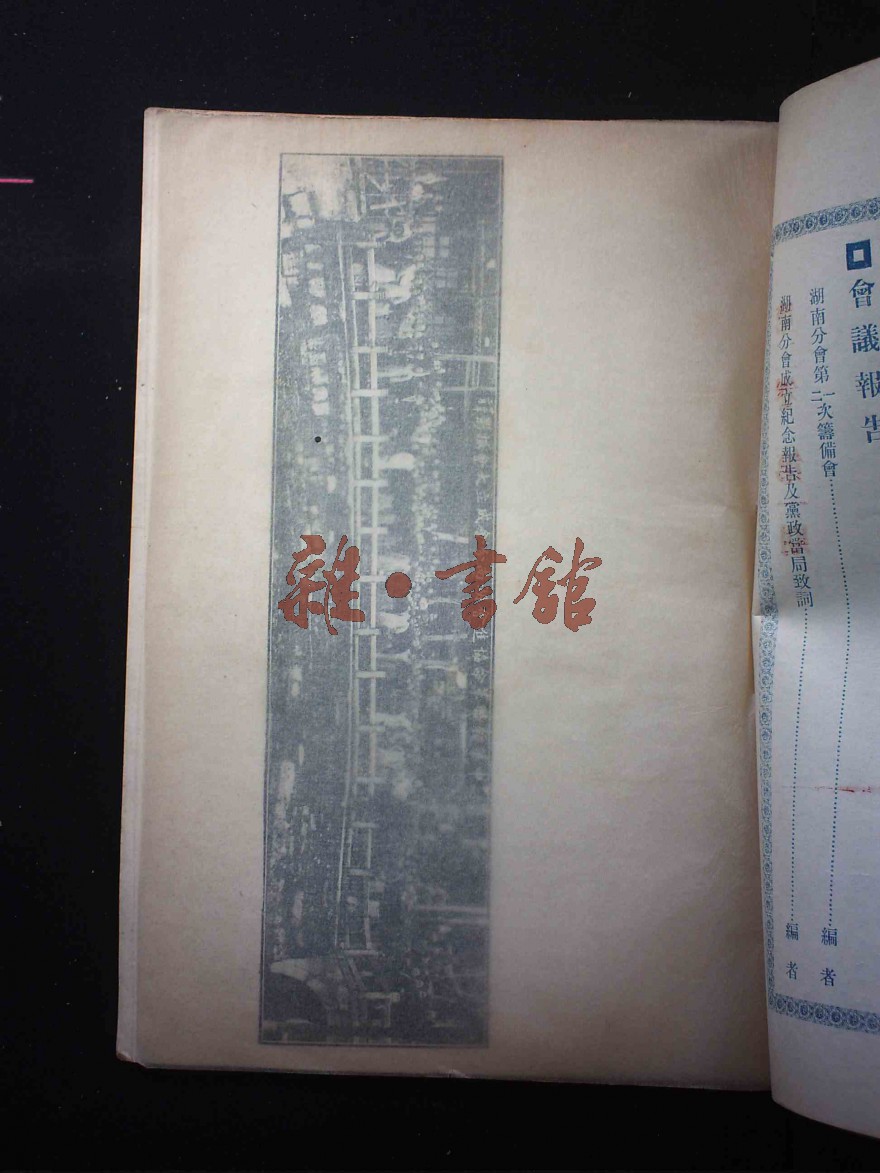 會議報告
湖南分會第一二次籌備會⋯⋯編者
湖南分會成立紀念報告及黨政當局致詞⋯⋯編者
雜・書館